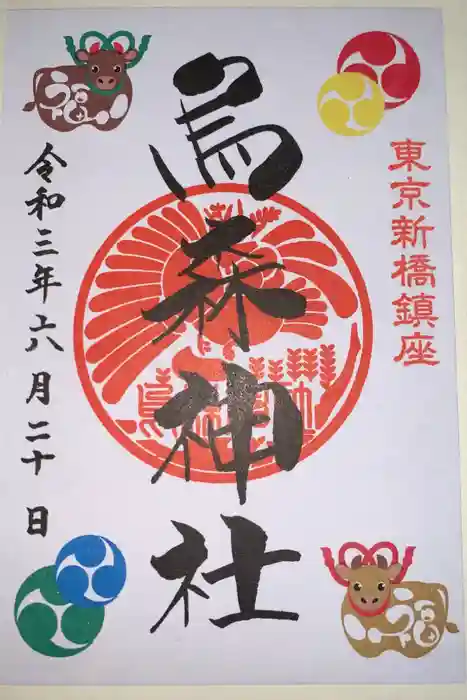 東京新橋鎮座
烏森神社
令和三年六月二十日
うし福
うし福